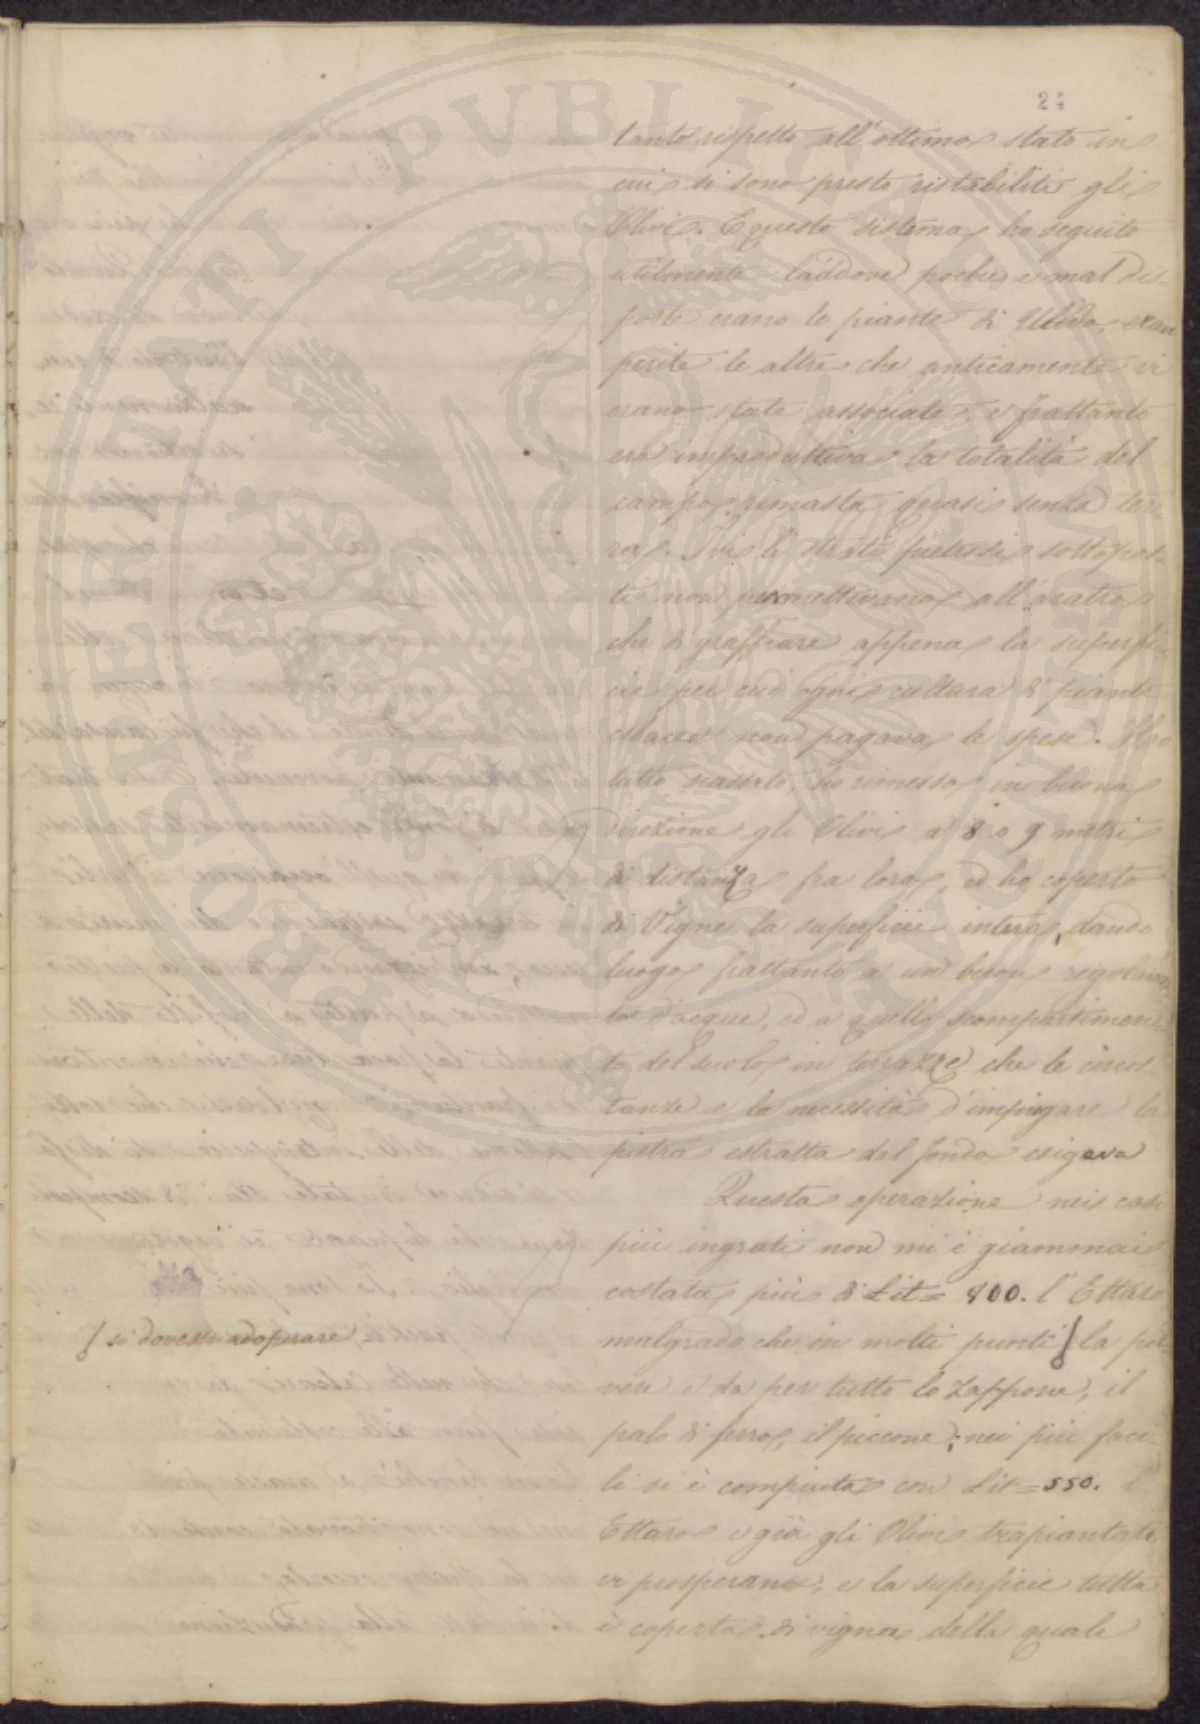 24
tanto rispetto all'ottimo stato in
cui si sono presto ristabiliti gli
Olivi. E questo sistema ho seguito
utilmente laddove poche e mal dis-
poste erano le piante di Ulivo, eran
perite le altre che anticamente vi
erano state associate, e frattanto
era improduttiva la totalità del
campo rimasta quasi senza ter-
ra. Ivi li strati petrosi sottopos-
ti non permettevano all'aratro
che di graffiare appena la superfi-
cie per cui ogni cultura di piante
erbacee non pagava le spese. Ho
tutto scassato, ho rimesso in buona
direzione gli Olivi a 8 o 9 metri
di distanza fra loro, ed ho coperto
di Vigne la superficie intera, dando
luogo frattanto a un buon regolamen-
to d'acque, ed a quello scompartimen-
to del suolo in terrazze che le circos-
tanze e la necessità d'impiegare la
pietra estratta dal fondo esigeva
Questa operazione nei casi
più ingrati non mi è giammai
costata più di Lit= 800. l'Ettaro
malgrado che in molti punti ∫ la pol-
∫ si dovesse adoperare
vere e da per tutto lo zappone, il
palo di ferro, il piccone; nei più faci-
li si è compiuta con Lit=550. l'
Ettaro e già gli Olivi trapiantati
vi prosperano, e la superficie tutta
è coperta di vigna della quale
PUBLICA